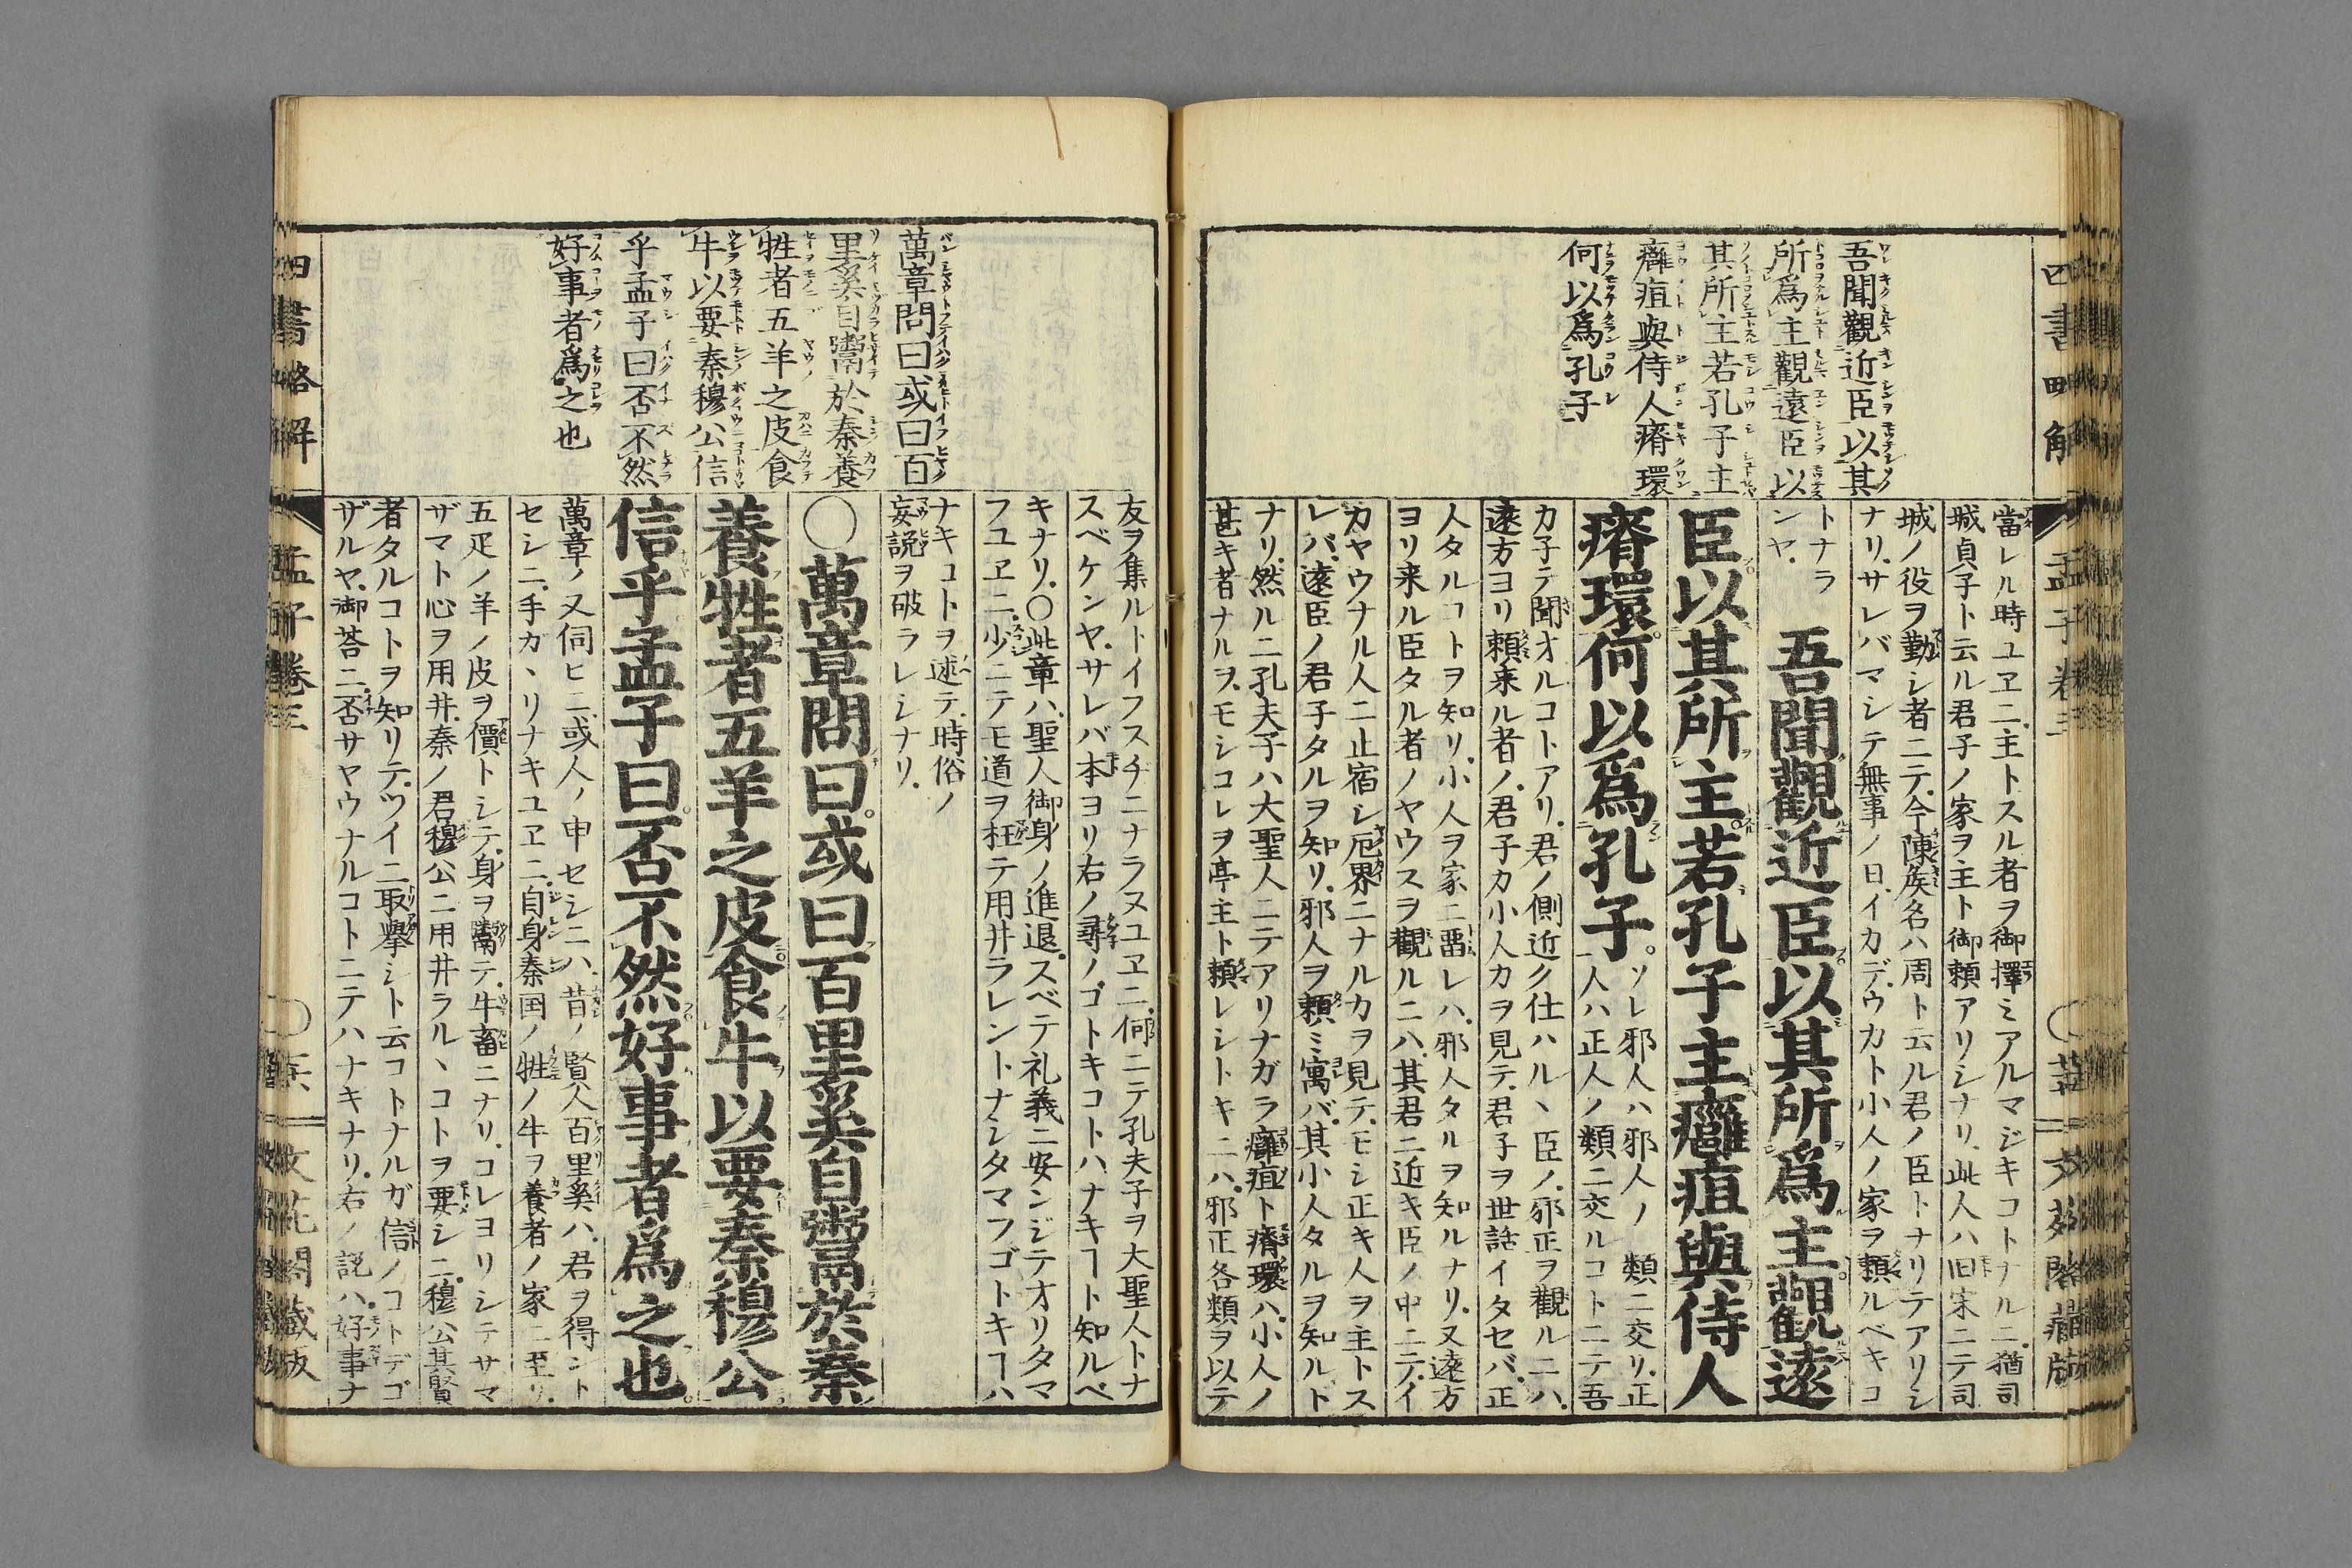 吾聞觀近臣以其
所爲主觀遠臣以
其所主若孔子主
癰疽與侍人瘠環
何以爲孔子
當レル時ユヱニ主トスル者ヲ御擇ミアルマジキコトナルニ猶司
城貞子ト云ル君子ノ家ヲ主ト御頼アリシナリ此人ハ旧宋ニテ司
城ノ役ヲ勤シ者ニテ今陳侯名ハ周ト云ル君ノ臣トナリテアリシ
ナリサレバマシテ無事ノ日イカデウカト小人ノ家ヲ頼ルベキコ
トナラ
ンヤ
吾聞觀近臣以其所爲主觀遠
臣以其所主若孔子主癰疽與侍人
瘠環何以爲孔子
ソレ邪人ハ邪人ノ類ニ交リ正
人ハ正人ノ類ニ交ルコトニテ吾
カ子テ聞オルコトアリ君ノ側近ク仕ハルヽ臣ノ邪正ヲ觀ルニハ
遠方ヨリ頼来ル者ノ君子カ小人カヲ見テ君子ヲ世話イタセバ正
人タルコトヲ知リ小人ヲ家ニ畱レハ邪人タルヲ知ルナリ又遠方
ヨリ来ル臣タル者ノヤウスヲ觀ルニハ其君ニ近キ臣ノ中ニテイ
カヤウナル人ニ止宿シ厄界ニナルカヲ見テモシ正キ人ヲ主トス
レバ遠臣ノ君子タルヲ知リ邪人ヲ頼ミ寓バ其小人タルヲ知ルト
ナリ然ルニ孔夫子ハ大聖人ニテアリナガラ癰疽ト瘠環ハ小人ノ
甚キ者ナルヲモシコレヲ亭主ト頼レシトキニハ邪正各類ヲ以テ
四書略解
孟子卷三
萬章問曰或曰百
里奚自鬻於秦養
牲者五羊之皮食
牛以要秦穆公信
乎孟子曰否不然
好事者爲之也
友ヲ集ルトイフスヂニナラヌユヱニ何ニテ孔夫子ヲ大聖人トナ
スベケンヤサレバ本ヨリ右ノ尋ノゴトキコトハナキヿト知ルベ
キナリ〇此章ハ聖人御身ノ進退スベテ礼義ニ安ンジテオリタマ
フユヱニ少ニテモ道ヲ枉テ用井ラレントナシタマフゴトキヿハ
ナキコトヲ述テ時俗ノ
妄説ヲ破ラレシナリ
〇萬章問曰或曰百里奚自鬻於秦
養牲者五羊之皮食牛以要秦穆公
信乎孟子曰否不然好事者爲之也
萬章ノ又伺ヒニ或人ノ申セシニハ昔ノ賢人百里奚ハ君ヲ得ント
セシニ手カヽリナキユヱニ自身秦国ノ牲ノ牛ヲ養者ノ家ニ至リ
五疋ノ羊ノ皮ヲ價トシテ身ヲ鬻テ牛畜ニナリコレヨリシテサマ
ザマト心ヲ用井秦ノ君穆公ニ用井ラルヽコトヲ要シニ穆公其賢
者タルコトヲ知リテツイニ取擧シト云コトナルガ信ノコトデゴ
ザルヤ御荅ニ否サヤウナルコトニテハナキナリ右ノ説ハ好事ナ
四書略解
孟子卷三
文花閣蔵版